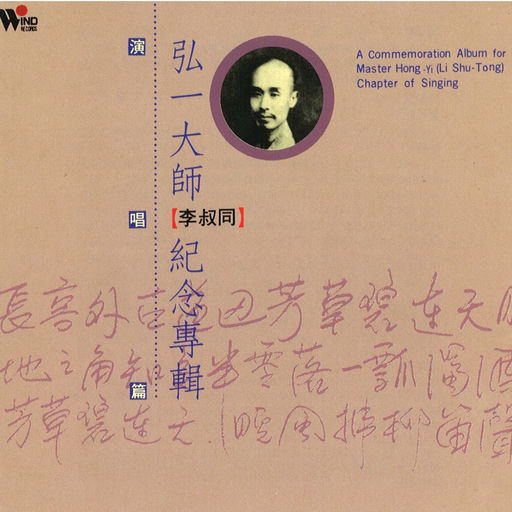 WIND
RECORDS
演唱篇
弘一大師
【李叔同】
紀念專輯
A Commemoration Album for
Master Hong-Yi (Li Shu-Tong)
Chapter of Singing
長亭外古道邊芳草碧連天晚
地之角知交半零落一瓢濁酒
芳草碧連天 晚風拂柳笛聲